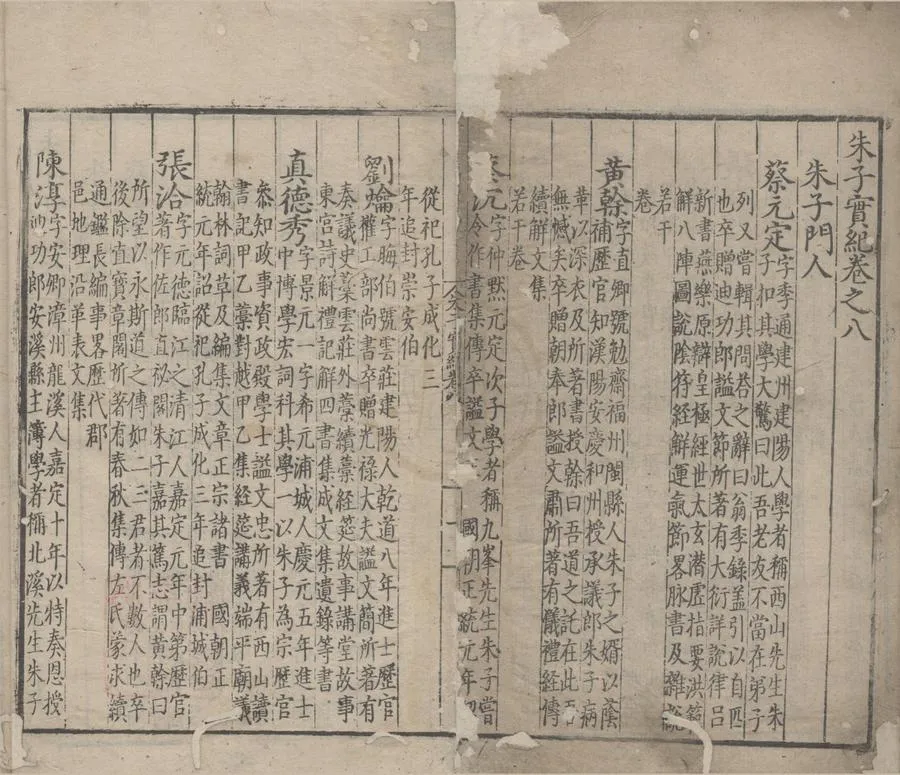 朱子實紀卷之八
朱子門人
蔡元定字季通建州建陽人學者稱西山先生朱
子扣其學大驚曰此吾老友不當在弟子
列又嘗輯其問荅之辭曰翁季錄盖引以自匹
也卒贈迪功郎謚文節所著有大衍詳說律吕
新書燕樂原辯皇極經世太玄潜虛指要洪範
解八陣圖說陰符經解運氣節畧脉書及雜說
若干
卷
黄榦字直卿號勉齋福州閩縣人朱子之婿以蔭
補歷官知漢陽安慶和州授承議郎朱子病
革以深衣及所著書授榦曰吾道之託在此吾
無憾矣卒贈朝奉郎謚文肅所著有儀禮經傳
續解文集
若干卷
沉字仲默元定次子學者稱九峯先生朱子嘗
令作書集傳卒謚文 國朝正統元年
從祀孔子成化三
年追封崇安伯
劉爚字晦伯號雲莊建陽人乾道八年進士歷官
權工部尚書卒贈光禄大夫謚文簡所著有
奏議史藁雲莊外藁續藁經筵故事講堂故事
東宫詩解禮記解四書集成文集遺錄等書
真德秀字景元一字希元浦城人慶元五年進士
中博學宏詞科其學一以朱子為宗歷官
叅知政事資政殿學士謚文忠所著有西山讀
書記甲乙藁對越甲乙集經筵講義端平廟議
翰林詞草及編集文章正宗諸書 國朝正
統元年詔從祀孔子成化三年追封浦城伯
張洽字元德臨江之清江人嘉定元年中第歷官
著作佐郎直祕閣朱子嘉其篤志謂黄榦曰
所望以永斯道之傳如二三君者不數人也卒
後除直寳章閣所著有春秋集傳左氏蒙求續
通鑑長編事畧歷代郡
邑地理沿革表文集
陳淳字安卿漳州龍溪人嘉定十年以特奏恩授
迪功郎安溪縣主簿學者稱北溪先生朱子